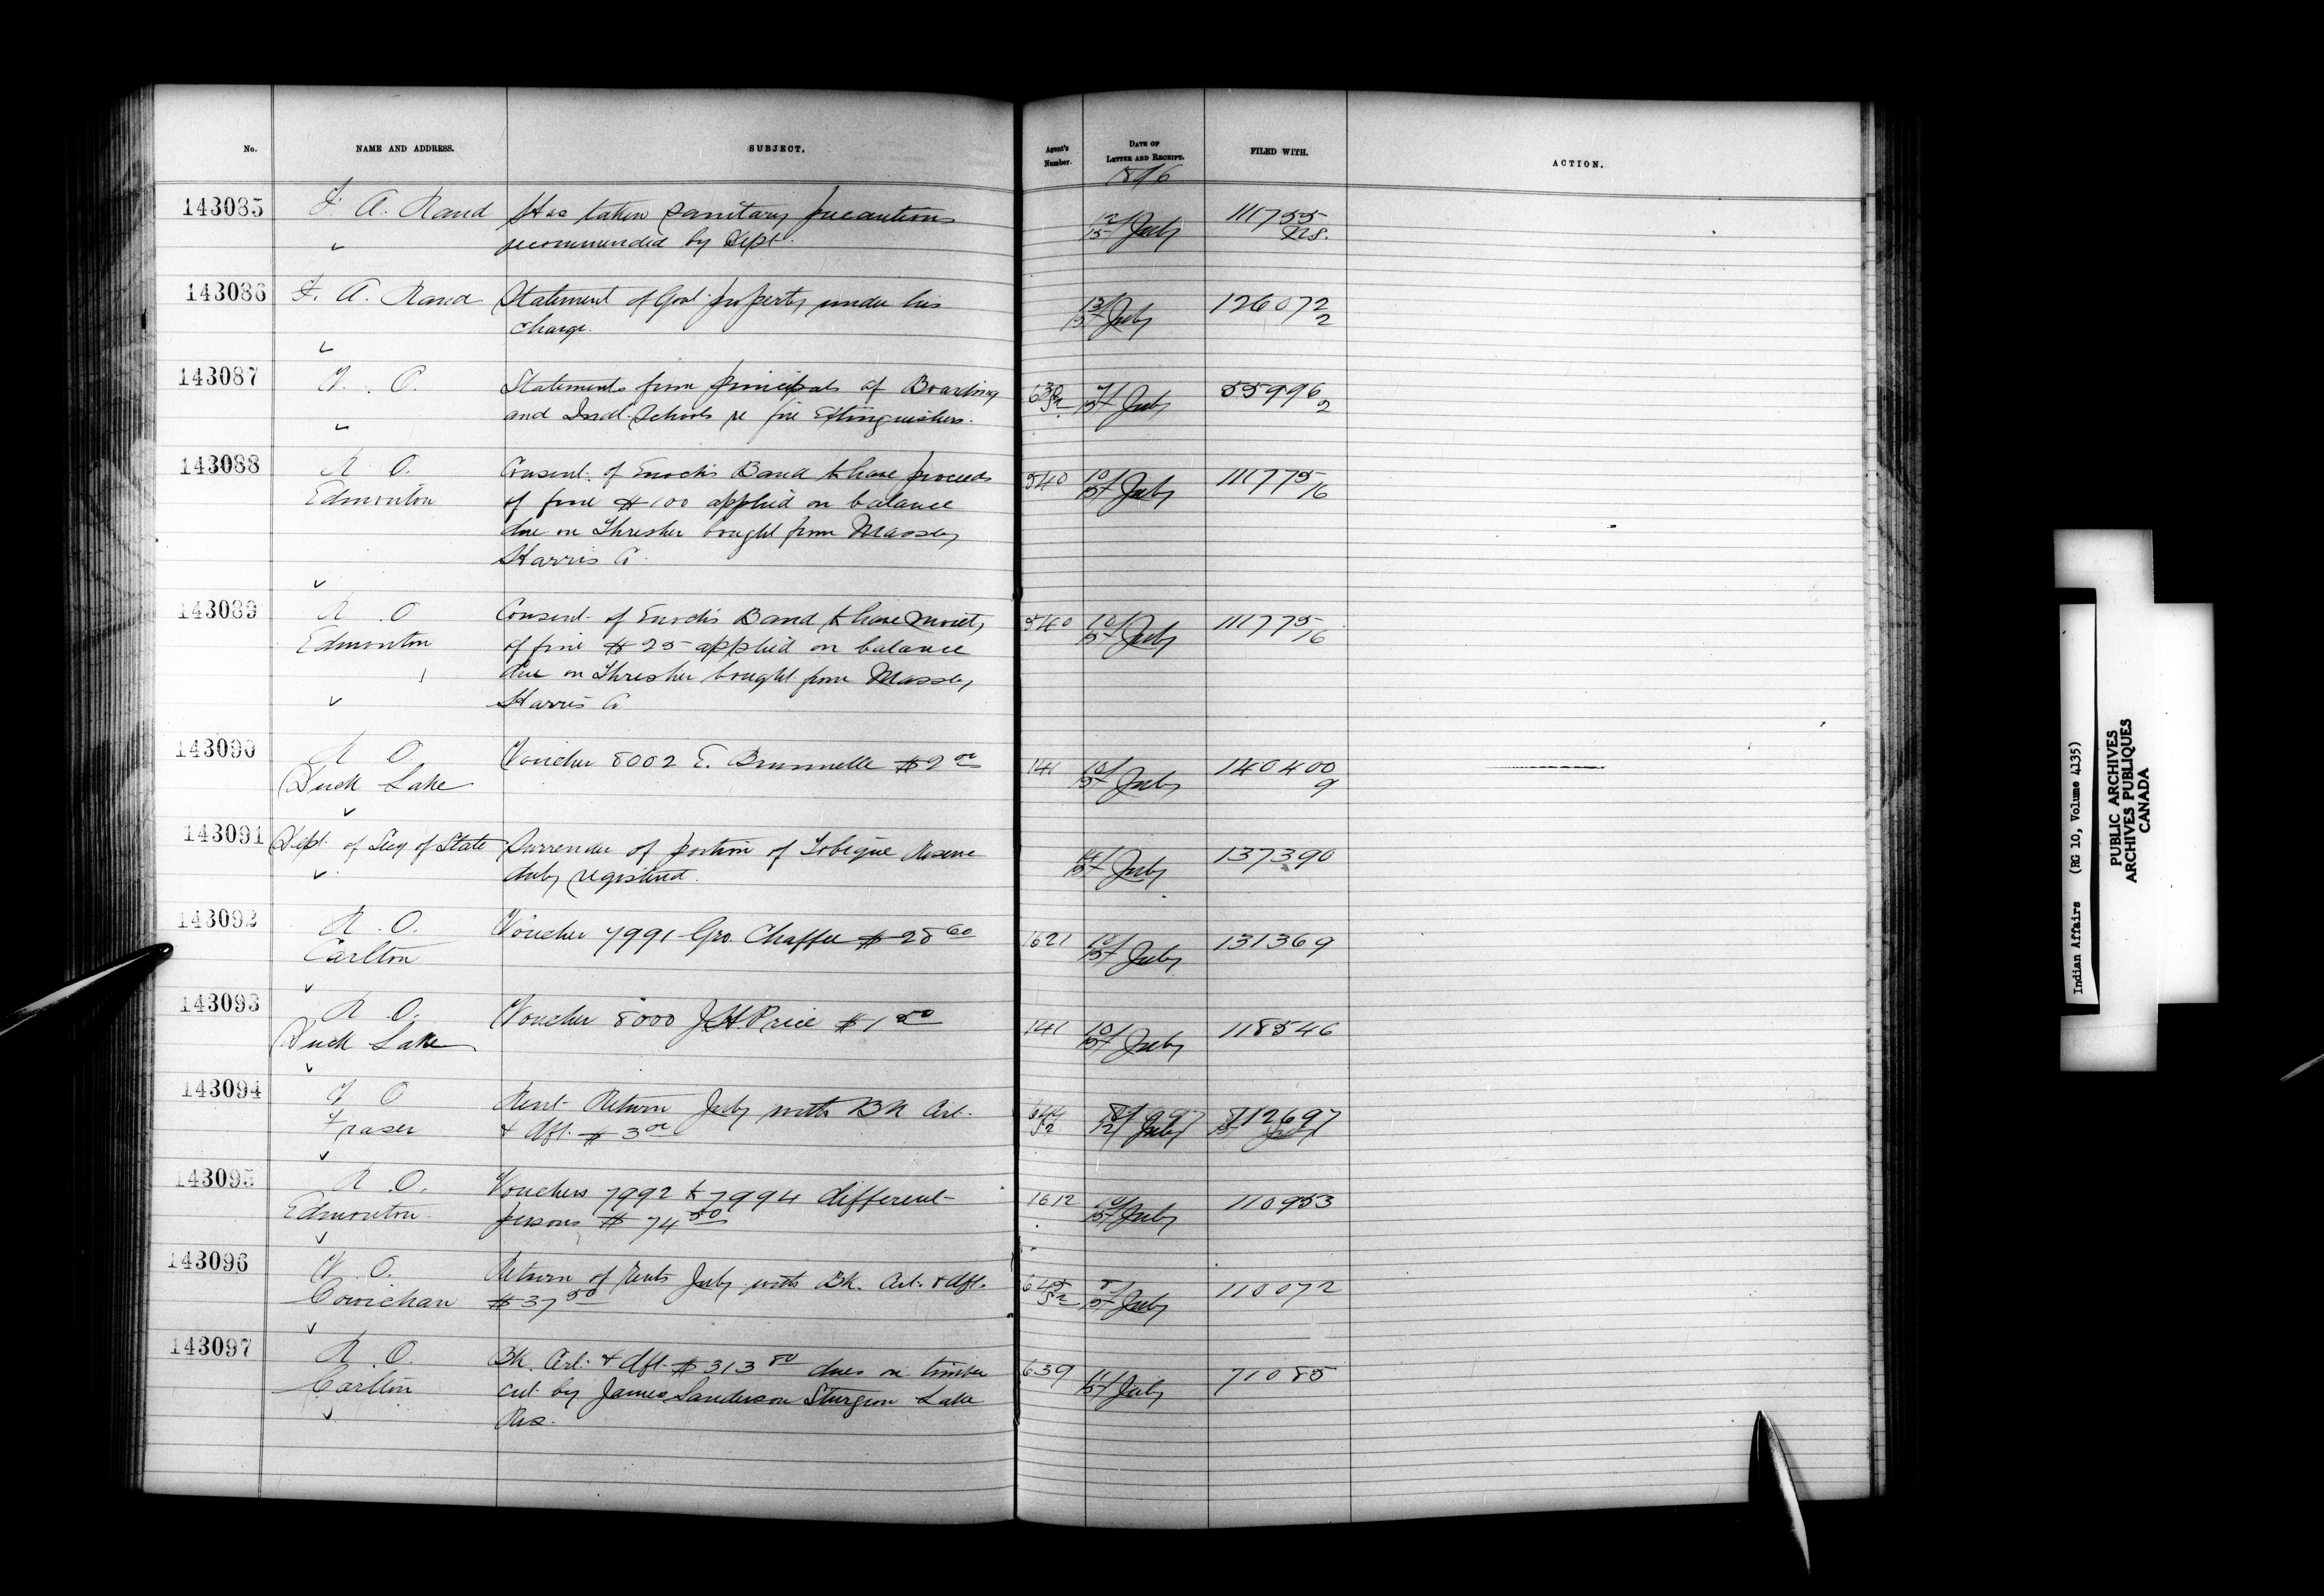 No. NAME AND ADDRESS. SUBJECT. Agent's Number. DATE OF LETTER AND RECEIPT. FILED WITH. ACTION.
1896
143085 F. A. Rand Has taken sanitary precautions 12/15 July 111755
recommended by Dept. NS.
143086 F. A. Rand Statement of Govt property under his 13/15 July 126072
charge. 2
143087 V. O. Statements from principals of Boarding 630 S2 7/15 July 55996
and Indl. Schools re fire Extinguishers. 2
143088 R O. Consent of Enoch's Band to have proceeds 540 10/15 July 111775
Edmonton of fine $100 applied on balance 16
due on Thresher bought from Massey
Harris Co.
143089 R. O Consent of Enoch's Band to have moiety 540 10/15 July 111775
Edmonton of fine $25 applied on balance 16
due on Thresher bought from Massey
Harris Co
143090 R O Voucher 8002 E. Brunnelle $2 00 141 10/15 July 140400
Duck Lake 9
143091 Dept. of Secy of State Surrender of portion of Tobique Reserve 14/15 July 137390
duly registered.
143092 R. O. Voucher 7991 Geo. Chaffee $28 60 1621 10/15 July 131369
Carlton
143093 R. O. Voucher 8000 J.H Price $1 50 141 10/15 July 118546
Duck Lake
143094 V O Rent Return July with BK Cert. 644 S2 July 112697
Fraser & dft. $3 00
143095 R. O. Vouchers 7992 to 7994 different 1612 10/15 July 110953
Edmonton persons $74 50
143096 V. O. Return of Rents July with Bk. Cert. & dft. 645 S2 8/15 July 110072
Cowichan $37 50
143097 R. O. Bk. Cert. & dft. $313 80 dues on timber 639 11/15 July 71085
Carlton cut by James Sanderson Sturgeon Lake
Res.
Indian Affairs (RG 10, Volume 4135)
PUBLIC ARCHIVES
ARCHIVES PUBLIQUES
CANADA